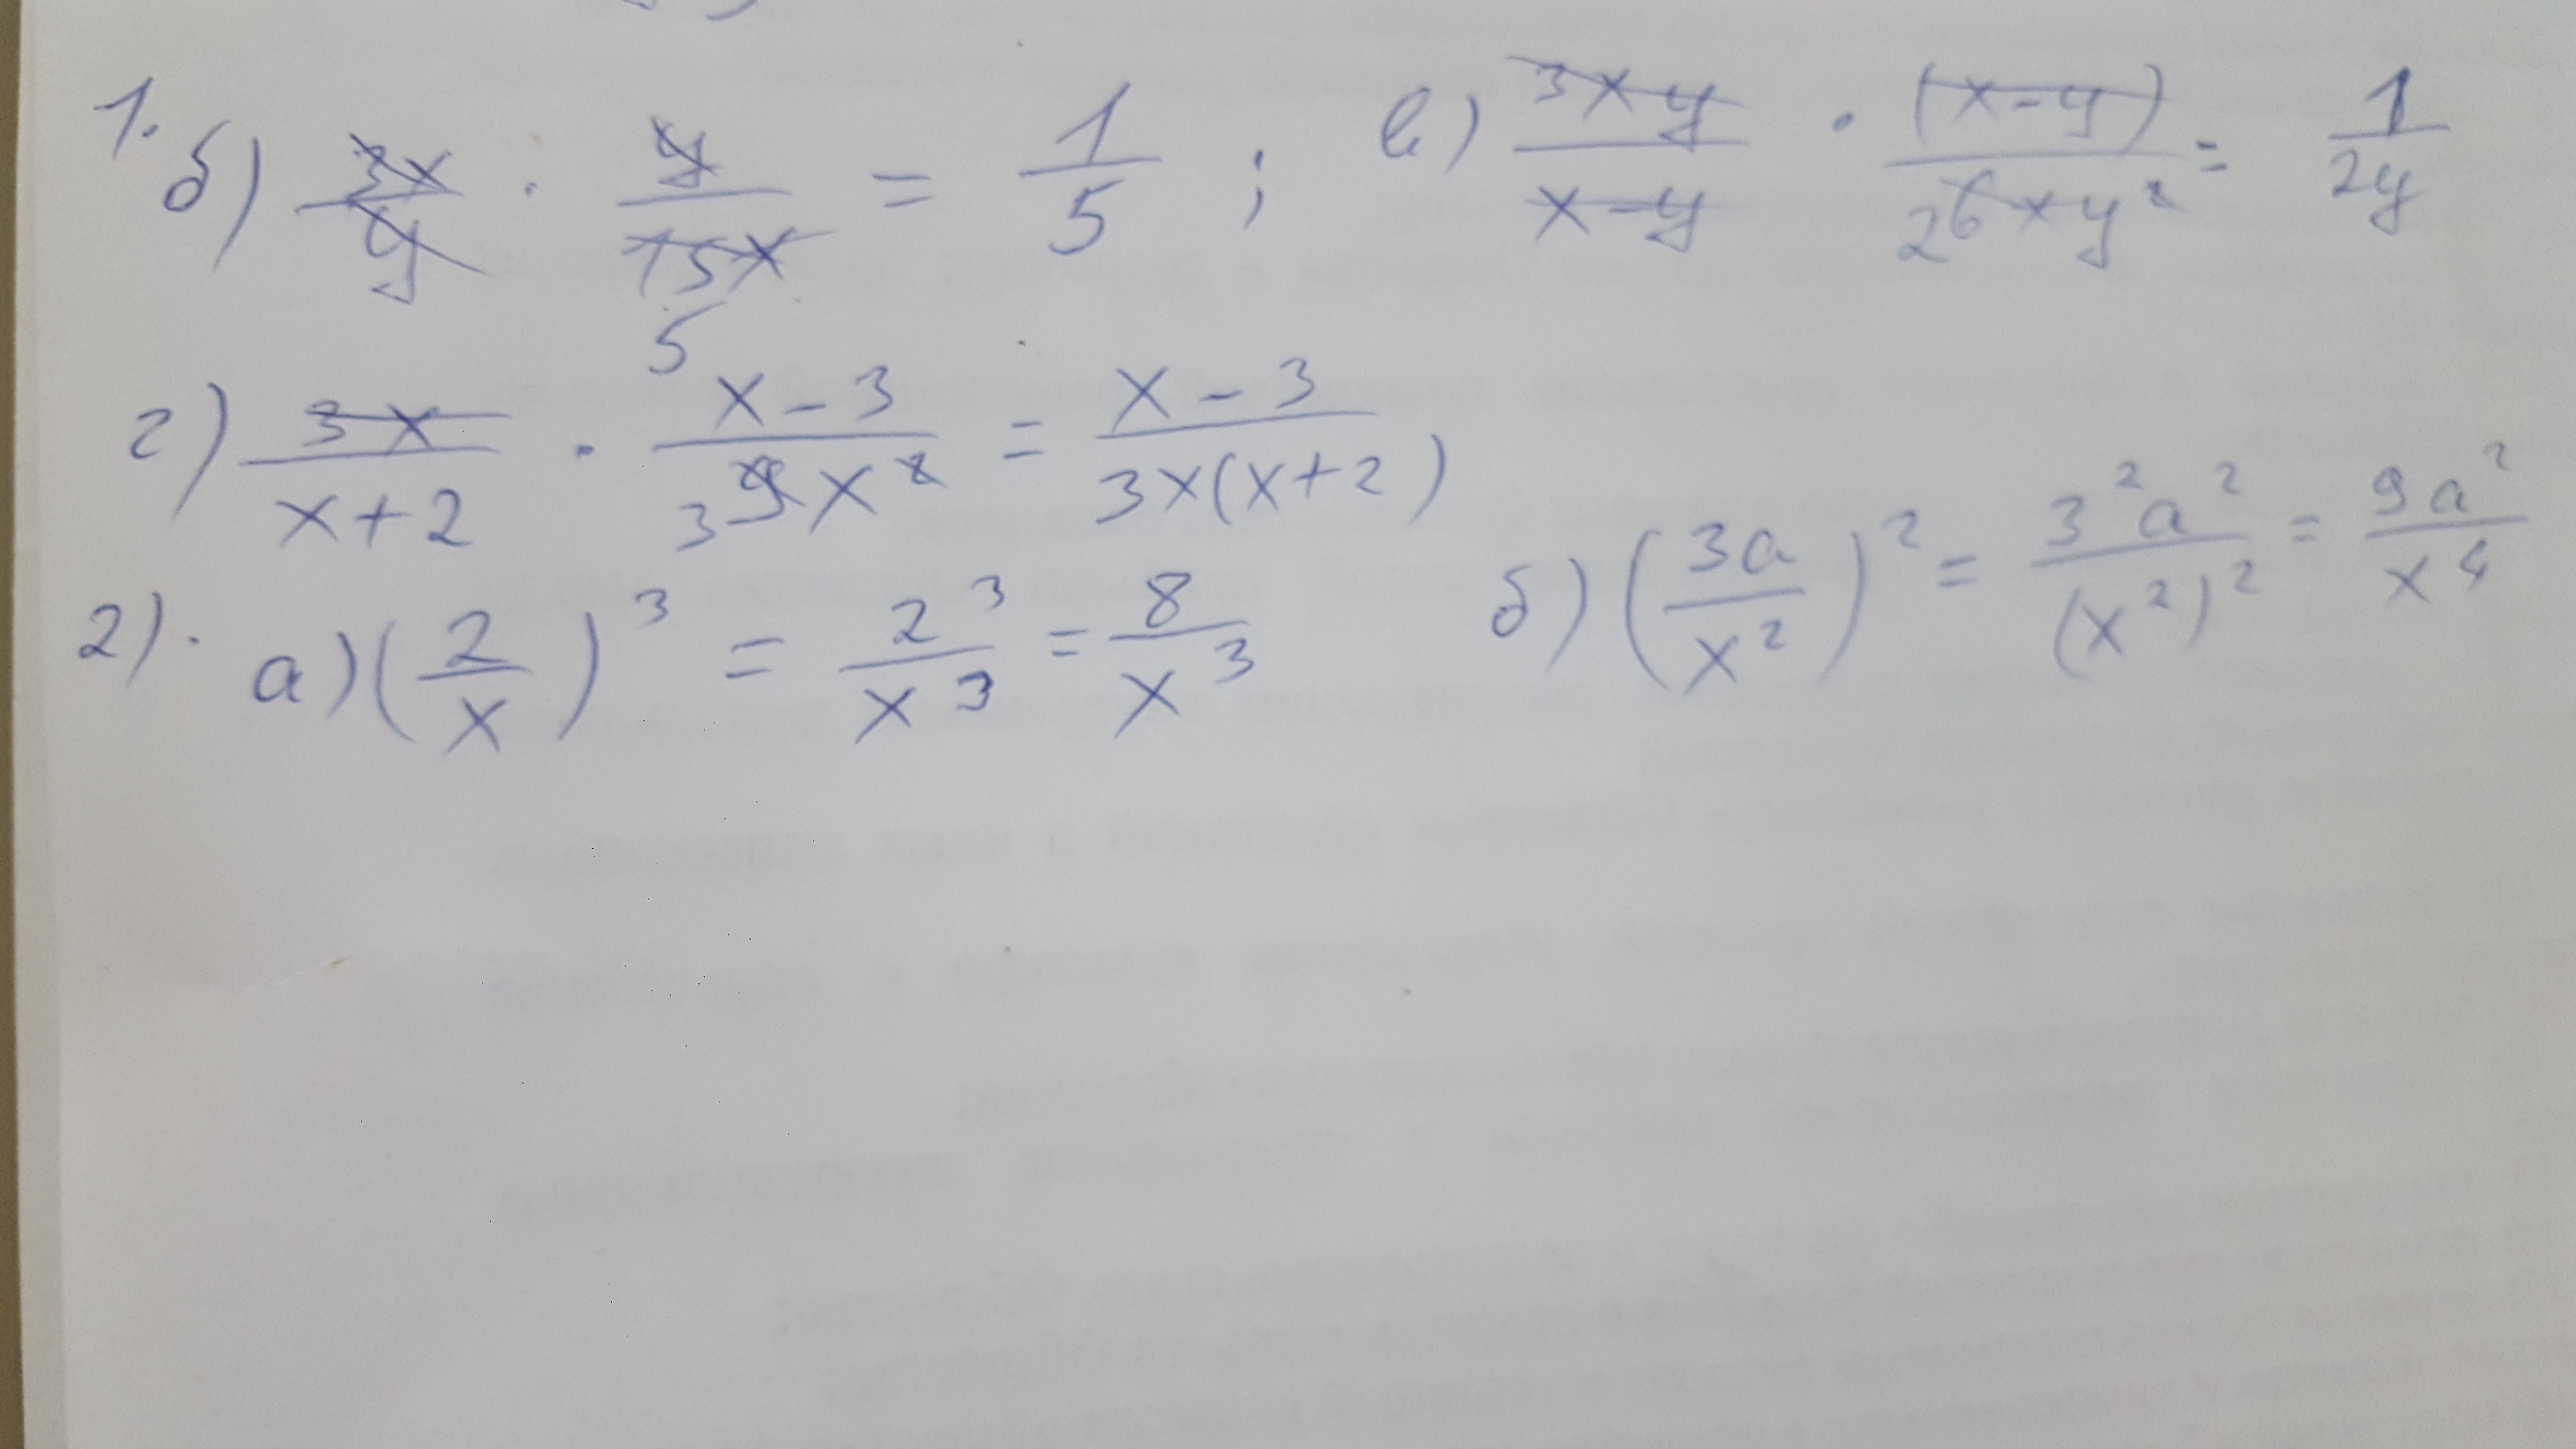 1. б) 3x/y · y/15x 5 = 1/5 ; в) 3xy/x-y · (x-y)/2 6xy² = 1/2y
г) 3x/x+2 · x-3/3 9x² = x-3/3x(x+2)
2). а) (2/x)³ = 2³/x³ = 8/x³ б) (3a/x²)² = 3²a²/(x²)² = 9a²/x⁴